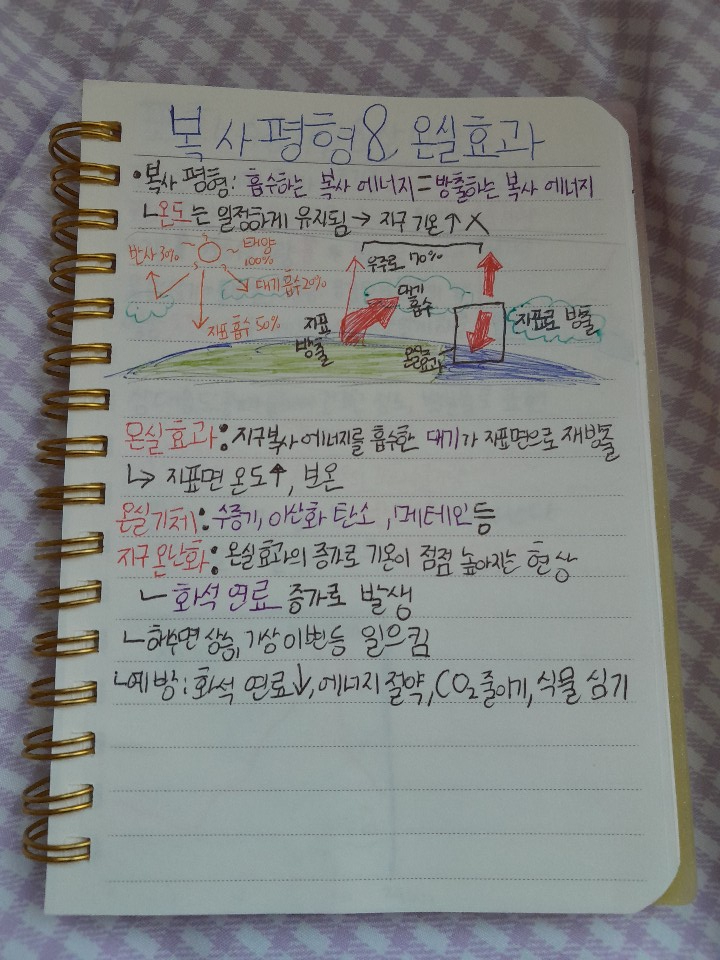 복사평형& 온실효과
•복사 평형: 흡수하는 복사 에너지=방출하는 복사 에너지
ㄴ온도는 일정하게 유지됨 → 지구 기온↑ X
반사 30%
태양 100%
대기 흡수 20%
지표 흡수 50%
우주로 70%
대기 흡수
지표 방출
온실효과
지표로 방출
온실효과: 지구복사 에너지를 흡수한 대기가 지표면으로 재방출
↳ 지표면 온도↑, 보온
온실기체: 수증기, 이산화 탄소, 메테인 등
지구 온난화: 온실효과의 증가로 기온이 점점 높아지는 현상
ㄴ화석 연료 증가로 발생
ㄴ해수면 상승, 기상이변 등 일으킴
ㄴ예방: 화석 연료↓, 에너지 절약, CO₂ 줄이기, 식물 심기